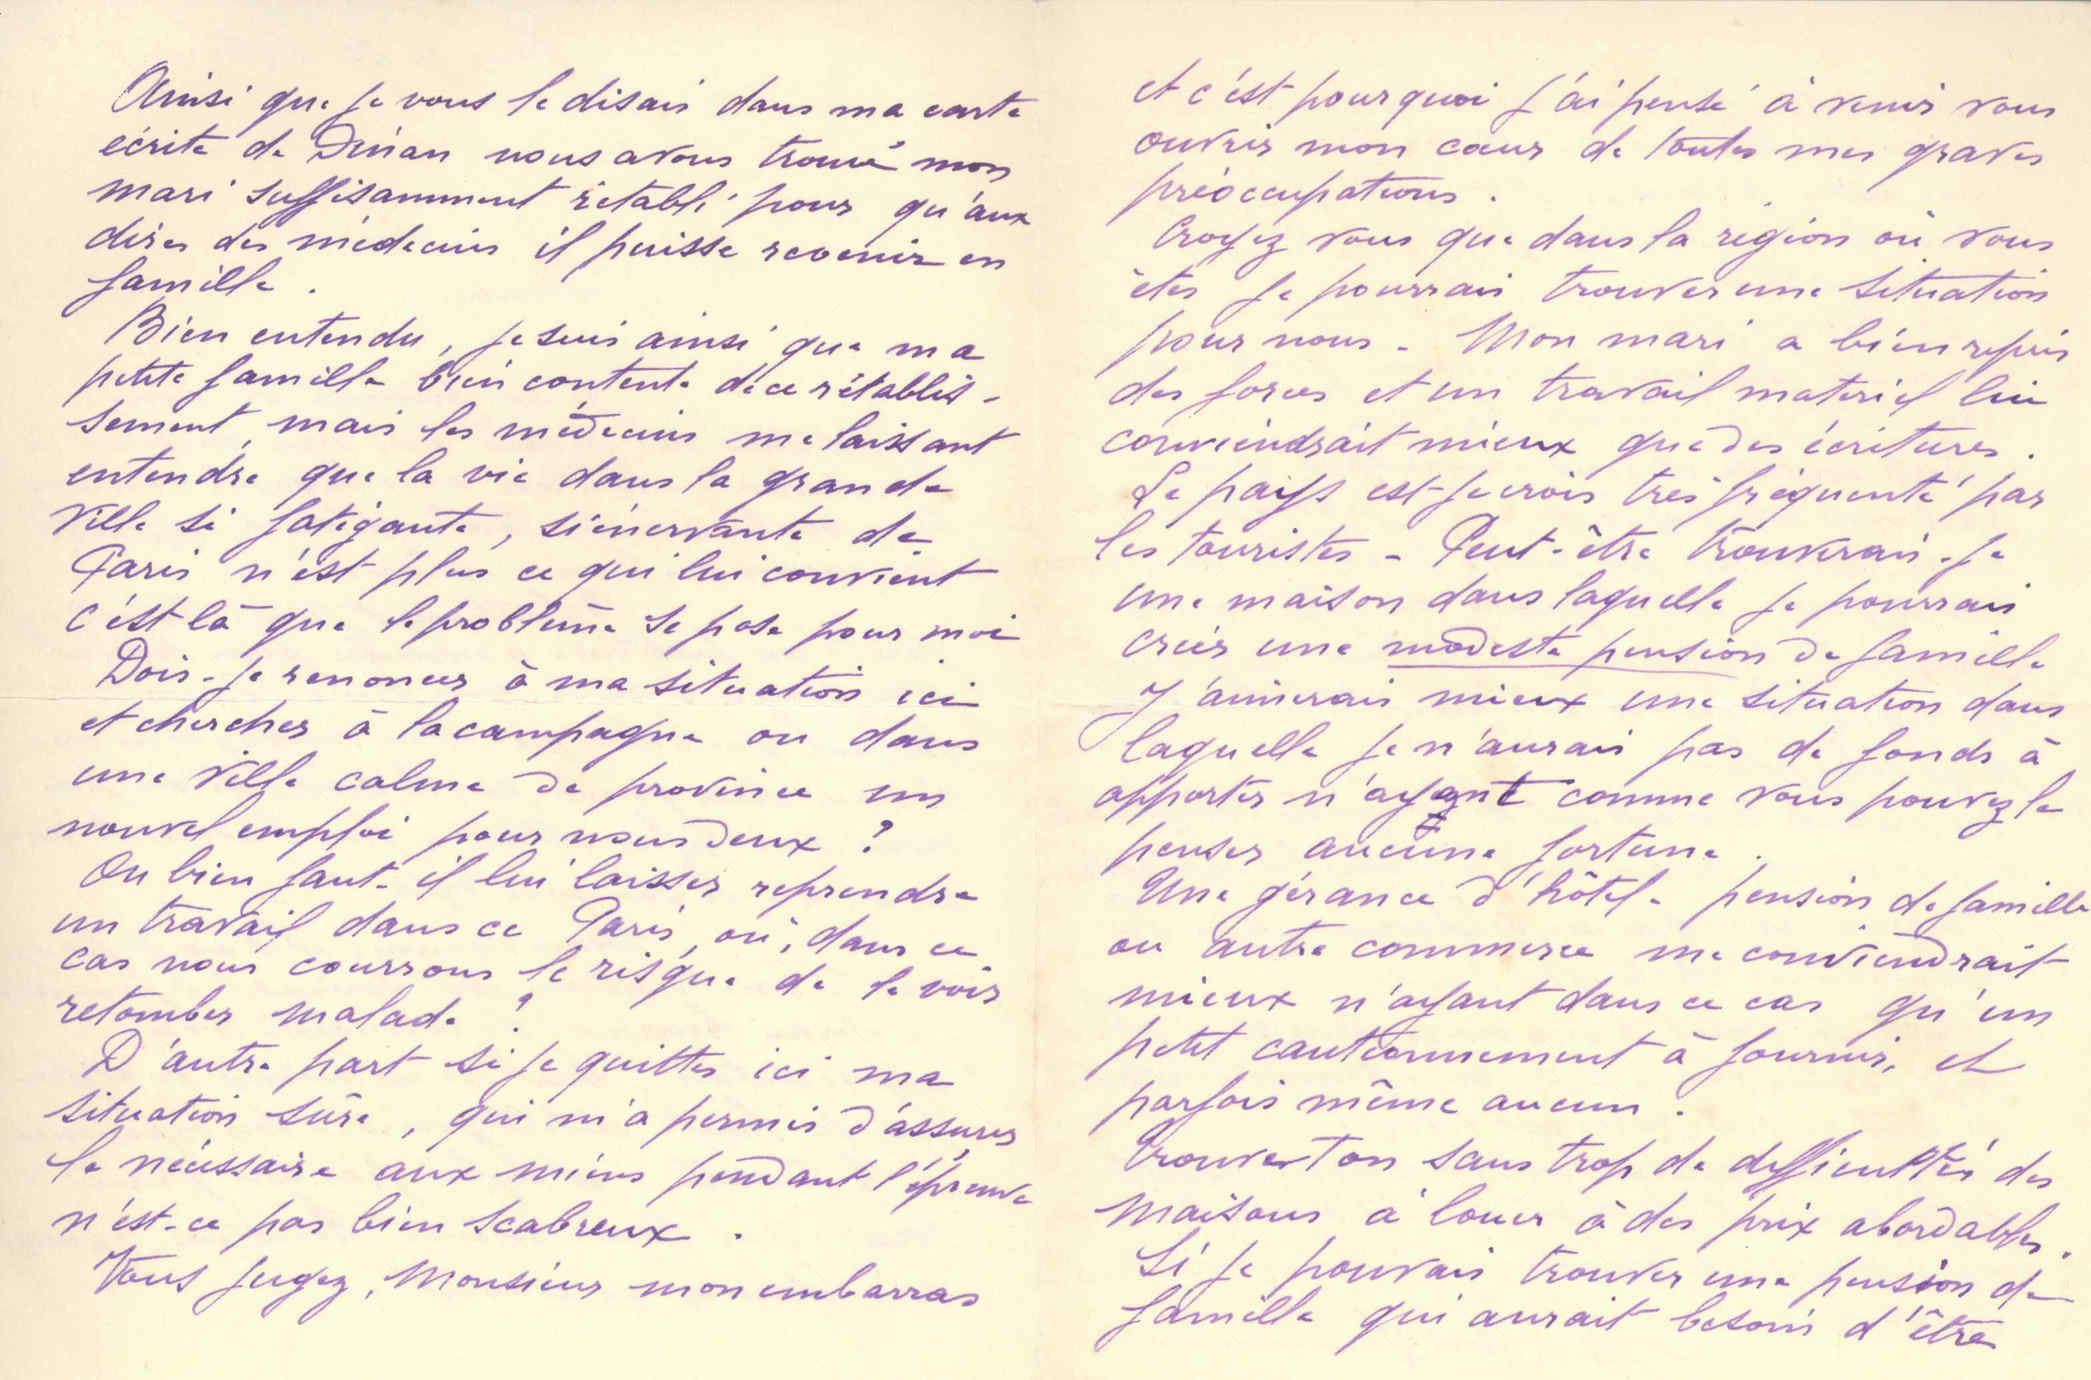 Ainsi que je vous le disais dans ma carte
écrite de Dinan nous avons trouvé mon
mari suffisamment rétabli pour qu'aux
dires des médecins il puisse revenir en
famille.
Bien entendu, je suis ainsi que ma
petite famille bien contente de ce rétablis-
sement, mais les médecins me laissant
entendre que la vie dans la grande
ville si fatigante, si énervante de
Paris n'est plus ce qui lui convient
c'est là que le problème se pose pour moi
Dois-je renoncer à ma situation ici
et chercher à la campagne ou dans
une ville calme de province un
nouvel emploi pour nous deux ?
Ou bien faut-il lui laisser reprendre
un travail dans ce Paris, où, dans ce
cas nous courrons le risque de le voir
retomber malade ?
D'autre part si je quitte ici ma
situation sûre, qui m'a permis d'assurer
le nécessaire aux miens pendant l'épreuve
n'est-ce pas bien scabreux.
Vous jugez, Monsieur mon embarras
et c'est pourquoi j'ai pensé à venir vous
ouvrir mon cœur de toutes mes graves
préoccupations.
Croyez vous que dans la région où vous
êtes je pourrais trouver une situation
pour nous - Mon mari a bien repris
des forces et un travail matériel lui
conviendrait mieux que des écritures.
Le pays est je crois très fréquenté par
les touristes - Peut-être trouverais-je
une maison dans laquelle je pourrais
créer une modeste pension de famille
J'aimerais mieux une situation dans
laquelle je n'aurais pas de fonds à
apporter n'ayant comme vous pouvez le
penser aucune fortune.
Une gérance d'hôtel - pension de famille
ou autre commerce me conviendrait
mieux n'ayant dans ce cas qu'un
petit cautionnement à fournir, et
parfois même aucun.
Trouve t on sans trop de difficultés des
maisons à louer à des prix abordables.
Si je pouvais trouver une pension de
famille qui aurait besoin d'être